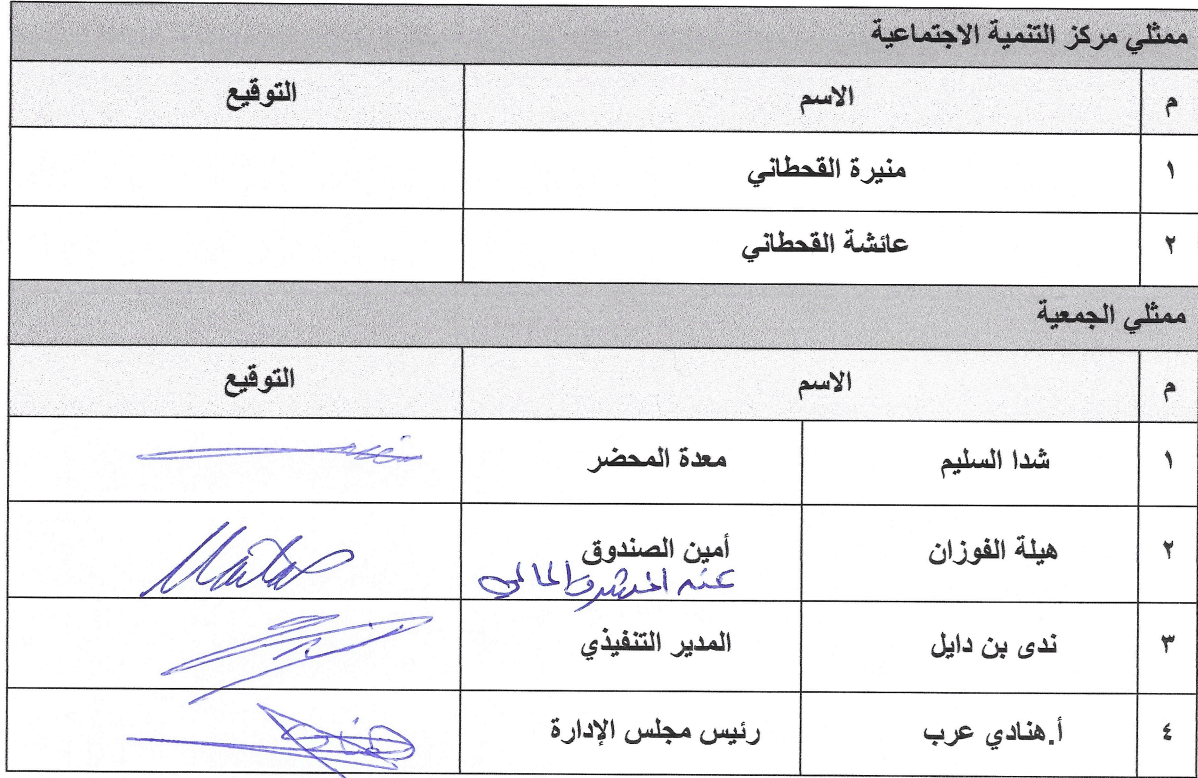 ممثلي مركز التنمية الاجتماعية
م الاسم التوقيع
١ منيرة القحطاني
٢ عائشة القحطاني
ممثلي الجمعية
م الاسم التوقيع
١ شدا السليم معدة المحضر
٢ هيلة الفوزان أمين الصندوق
عنه المشرف المالي
٣ ندى بن دايل المدير التنفيذي
٤ أ.هنادي عرب رئيس مجلس الإدارة